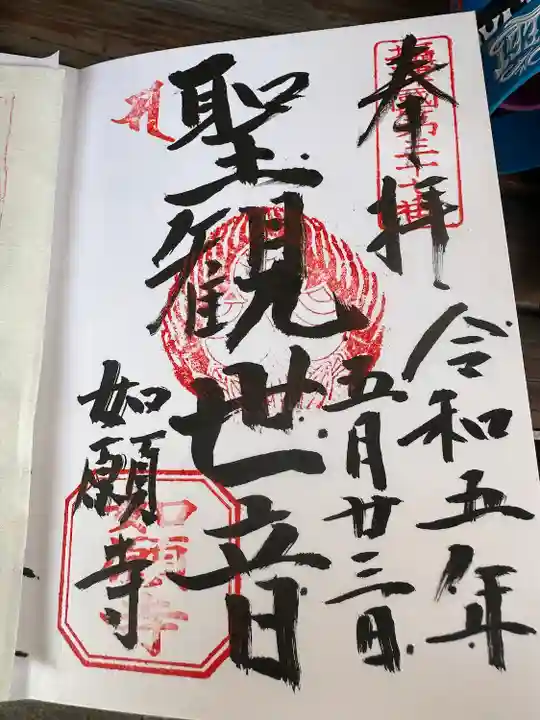 奉拝
令和五年
五月廿三日
聖観世音
如願寺
如願寺